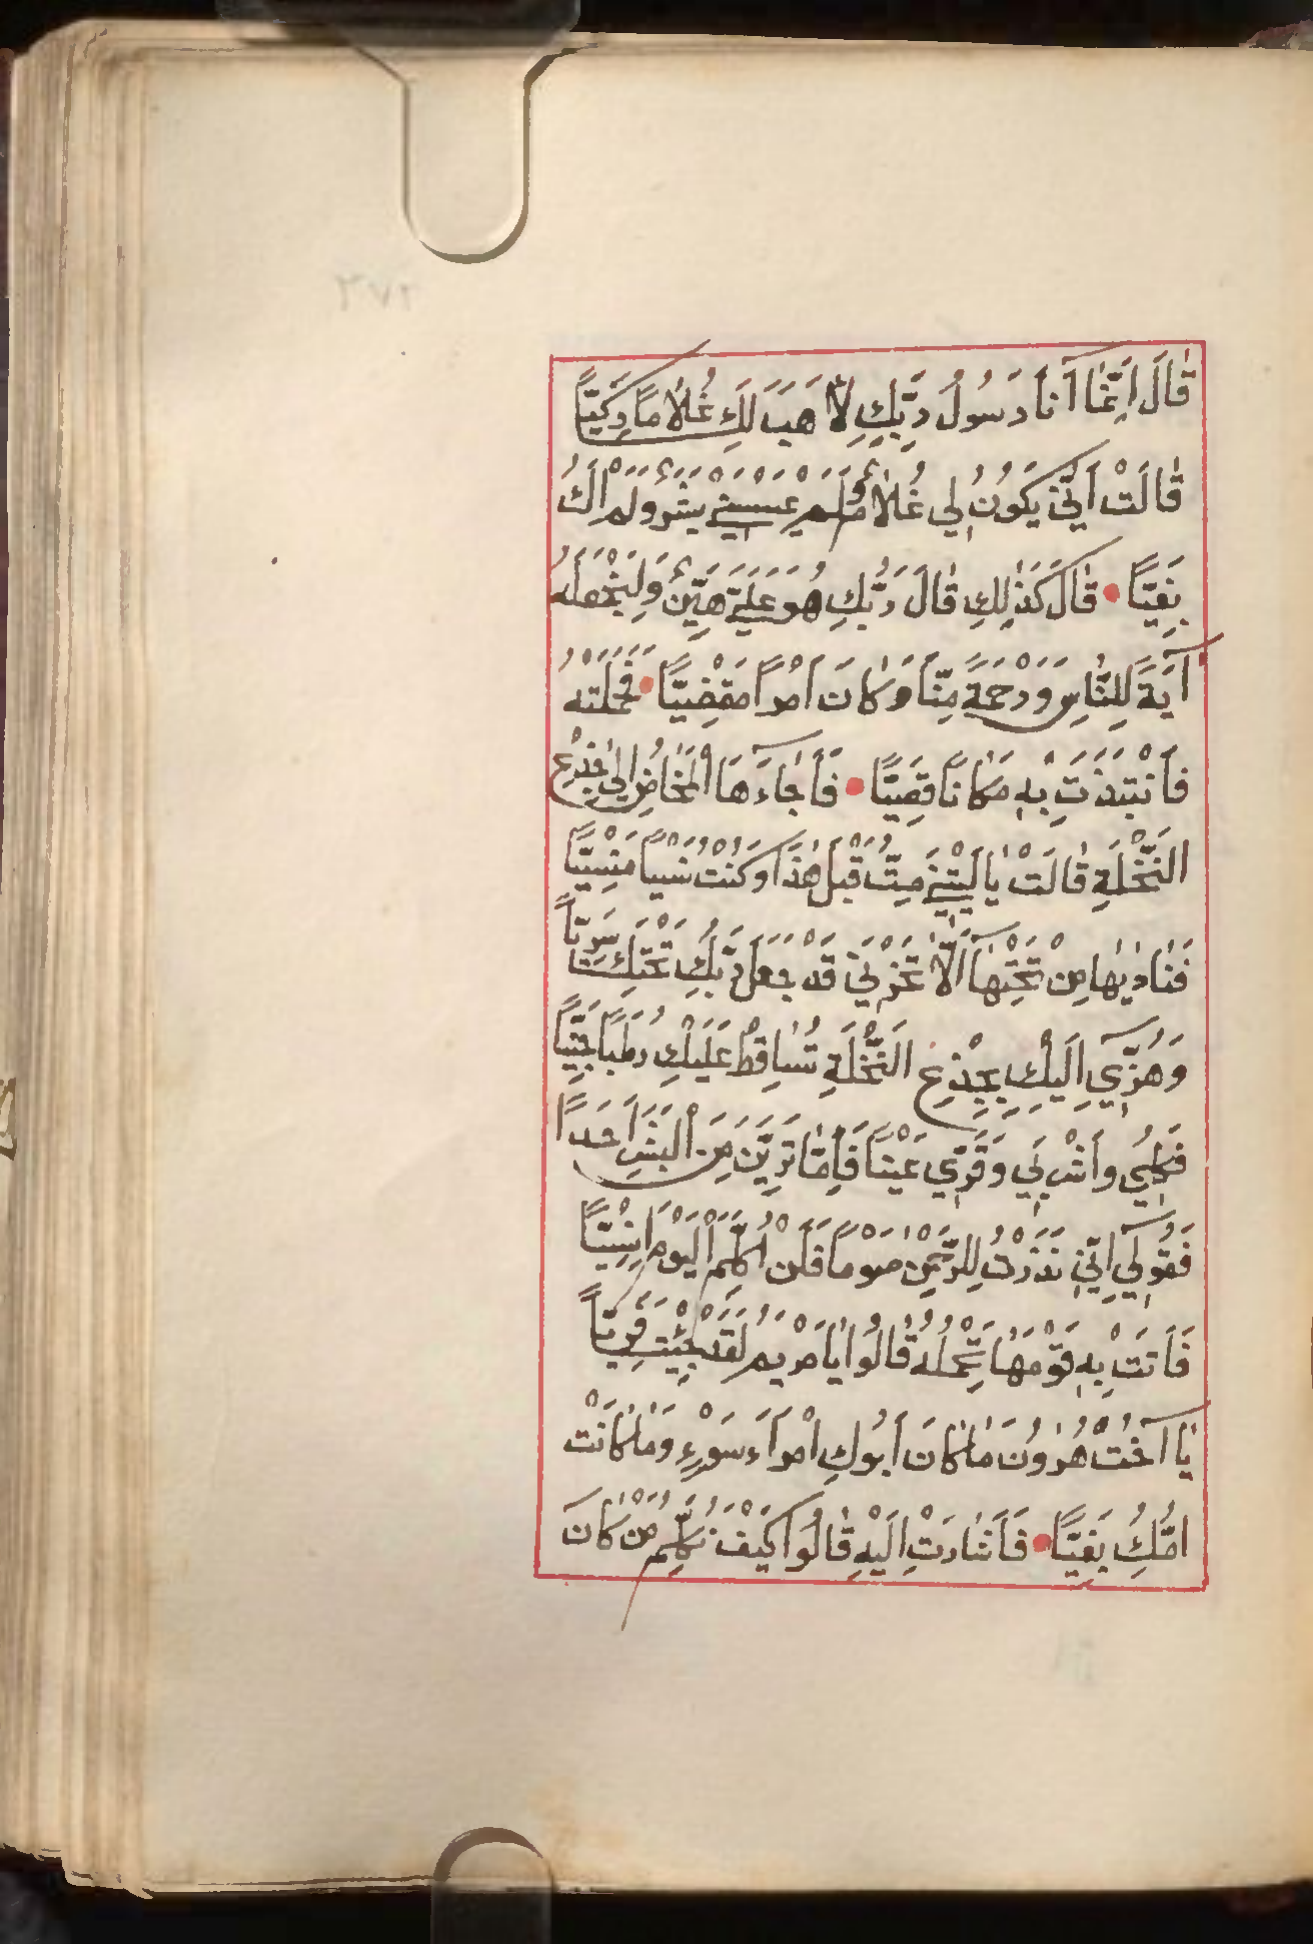 قَالَ اِنَّمَٓا اَنَا رَسُولُ رَبِّكِ لِاَهَبَ لَكِ غُلَامًا زَكِيًّا
قَالَتْ اَنّٰى يَكُونُ لِي غُلَامٌ وَلَمْ يَمْسَسْنِي بَشَرٌ وَلَمْ اَكُ
بَغِيًّا • قَالَ كَذٰلِكِ قَالَ رَبُّكِ هُوَ عَلَيَّ هَيِّنٌ وَلِنَجْعَلَهُ
آيَةً لِلنَّاسِ وَرَحْمَةً مِنَّا وَكَانَ اَمْرًا مَقْضِيًّا • فَحَمَلَتْهُ
فَانْتَبَذَتْ بِهِ مَكَانًا قَصِيًّا • فَاَجَٓاءَهَا الْمَخَاضُ اِلٰى جِذْعِ
النَّخْلَةِ قَالَتْ يَا لَيْتَنِي مِتُّ قَبْلَ هٰذَا وَكُنْتُ نَسْيًا مَنْسِيًّا
فَنَادٰيهَا مِنْ تَحْتِهَٓا اَلَّا تَحْزَنِي قَدْ جَعَلَ رَبُّكِ تَحْتَكِ سَرِيًّا
وَهُزِّٓي اِلَيْكِ بِجِذْعِ النَّخْلَةِ تُسَاقِطْ عَلَيْكِ رُطَبًا جَنِيًّا
فَكُلِي وَاشْرَبِي وَقَرِّي عَيْنًا فَاِمَّا تَرَيِنَّ مِنَ الْبَشَرِ اَحَدًا
فَقُولِٓي اِنِّي نَذَرْتُ لِلرَّحْمٰنِ صَوْمًا فَلَنْ اُكَلِّمَ الْيَوْمَ اِنْسِيًّا
فَاَتَتْ بِهِ قَوْمَهَا تَحْمِلُهُ قَالُوا يَا مَرْيَمُ لَقَدْ جِئْتِ شَيْئًا فَرِيًّا
يَٓا اُخْتَ هٰرُونَ مَا كَانَ اَبُوكِ امْرَاَ سَوْءٍ وَمَا كَانَتْ
اُمُّكِ بَغِيًّا • فَاَشَارَتْ اِلَيْهِ قَالُوا كَيْفَ نُكَلِّمُ مَنْ كَانَ